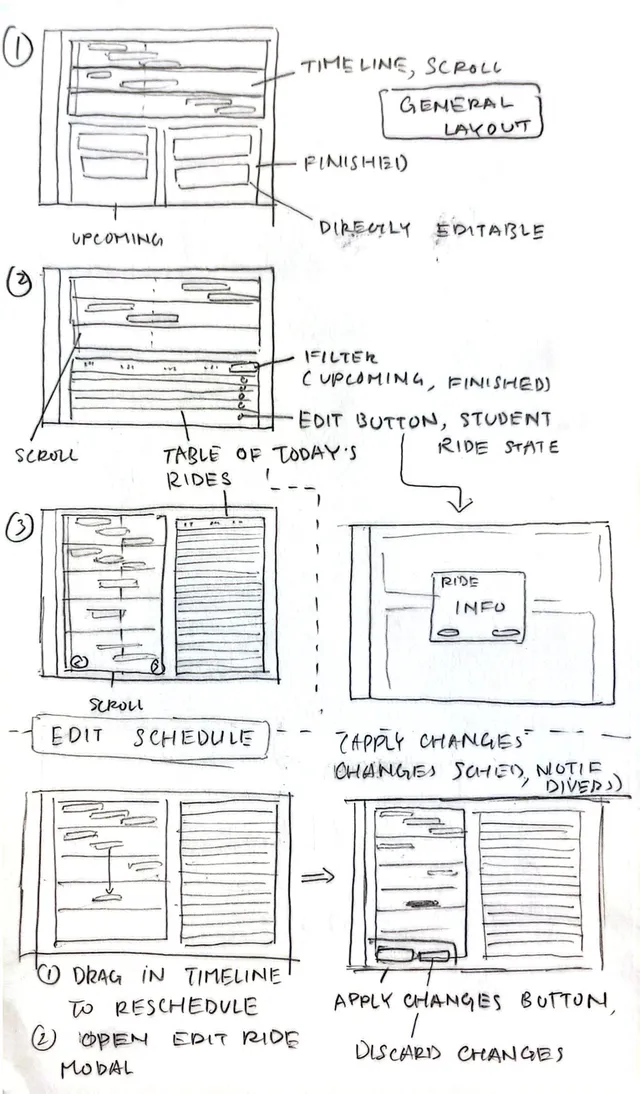 1
TIMELINE, SCROLL
GENERAL
LAYOUT
FINISHED
DIRECTLY EDITABLE
UPCOMING
2
FILTER
(UPCOMING, FINISHED)
EDIT BUTTON, STUDENT
RIDE STATE
SCROLL
TABLE OF TODAY'S
RIDES
3
RIDE
INFO
SCROLL
EDIT SCHEDULE
(APPLY CHANGES
CHANGES SCHED, NOTIF
DIVERS)
1 DRAG IN TIMELINE
TO RESCHEDULE
2 OPEN EDIT RIDE
MODAL
APPLY CHANGES BUTTON,
DISCARD CHANGES